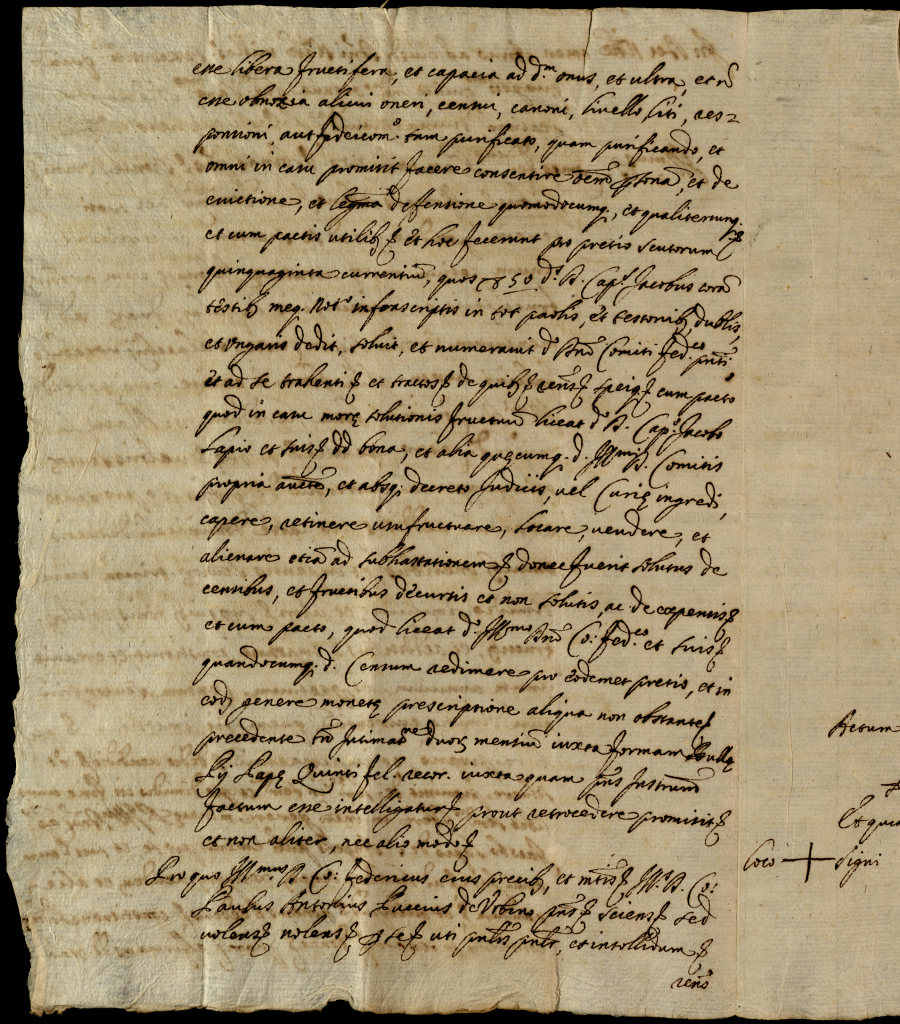 esse libera fructifera, et capacia ad d.m onus, et ultra, et n̄
esse obnoxia alicui oneri, censui, canoni, livello liti, res=
pontioni, aut fideicom.o tum purificato, quam purificando, et
omni in casu promisit facere consentire, et de
evictione, et legma deffentione quomodocumq, et qualitercunq.
et cum pactis utilib ꝭ et hoc fecerunt pro pretio scutorum
quinquaginta currentiū, quos ꝭ 50 d.s D. Cap.s Jacobus corā
testib meq. Not.o infrascriptis in tot paolis, et testonib, dublis,
et Ungaris dedit, soluit, et numeravit d.o Dn̄o Comiti Fed.co pn̄ti
et ad se trahenti ꝭ et tractos ꝭ de quib ꝭ cum pacto
quod in casu morę solutionis fructuū liceat d.o D. Cap.o Jacobo
Lapio et suis ꝭ dd bona, et alia quęcumq. d. Ill.mi D. Comitis
propria auctē, et absq. decreto Judicis, vel Curię ingredi,
capere, retinere usufructuare, locare, vendere, et
alienare etiā ad subhastationem ꝭ donec fuerit solutus de
censibus, et fructibus decursis et non solutis, ac de expensis ꝭ
et cum pacto, quod liceat d.o Ill.mo Dn̄o Co: Fed.co et suis ꝭ
quandocumq. d. Censum redimere pro eodemet pretio, et in
eod genere monetę prescriptione aliqua non obstante ꝭ
precedente tn̄ Intimat.ne duor mentiū iuxta formam Bullę
Pij Papę Quinti fel. recor. iuxta quam pn̄s Instrum
factum esse intelligatur ꝭ prout retrocedere promisit ꝭ
et non aliter, nec alio modo ꝭ
Pro quo Ill.mus D. Co: Federicus eius precib, et Ill.s D. Co:
Paulus Antonius Luccius de Urbino pn̄s ꝭ sciens ꝭ sed
volens ꝭ nolens ꝭ ꝑ se ꝭ uti et intollidum ꝭ
renō
Actum
Et quia
Loco + Signi